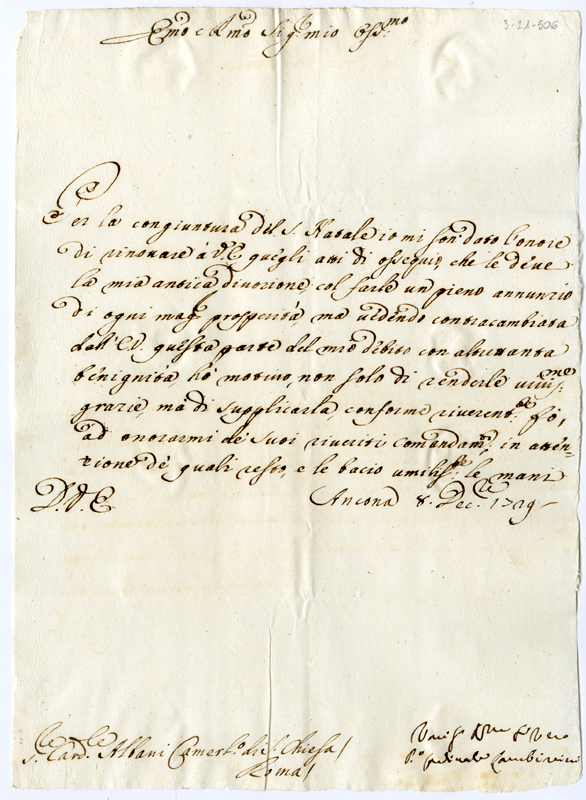 3-21-506
Emo e Rmo Sigr. mio Ossmo
Per la congiuntura del S. Natale io mi son dato l'onore
di rinovare à V.E. quegli atti di ossequio, che le deve
la mia antica divozione col farle un pieno annunzio
di ogni magr. prosperità, ma vedendo contracambiata
dall' E.V. questa parte del mio debito con altrettanta
benignità, hò motivo, non solo di renderle vivisme
grazie, ma di supplicarla, conforme riverente. fò,
ad onorarmi de suoi riveriti comandamti, in atten-
zione dè quali resto, e le bacio umilisse. le mani
D.V.E. Ancona 8. Decre. 1729
Sr. Card.le Albani Camerlo. di S. Chiesa/
Roma/